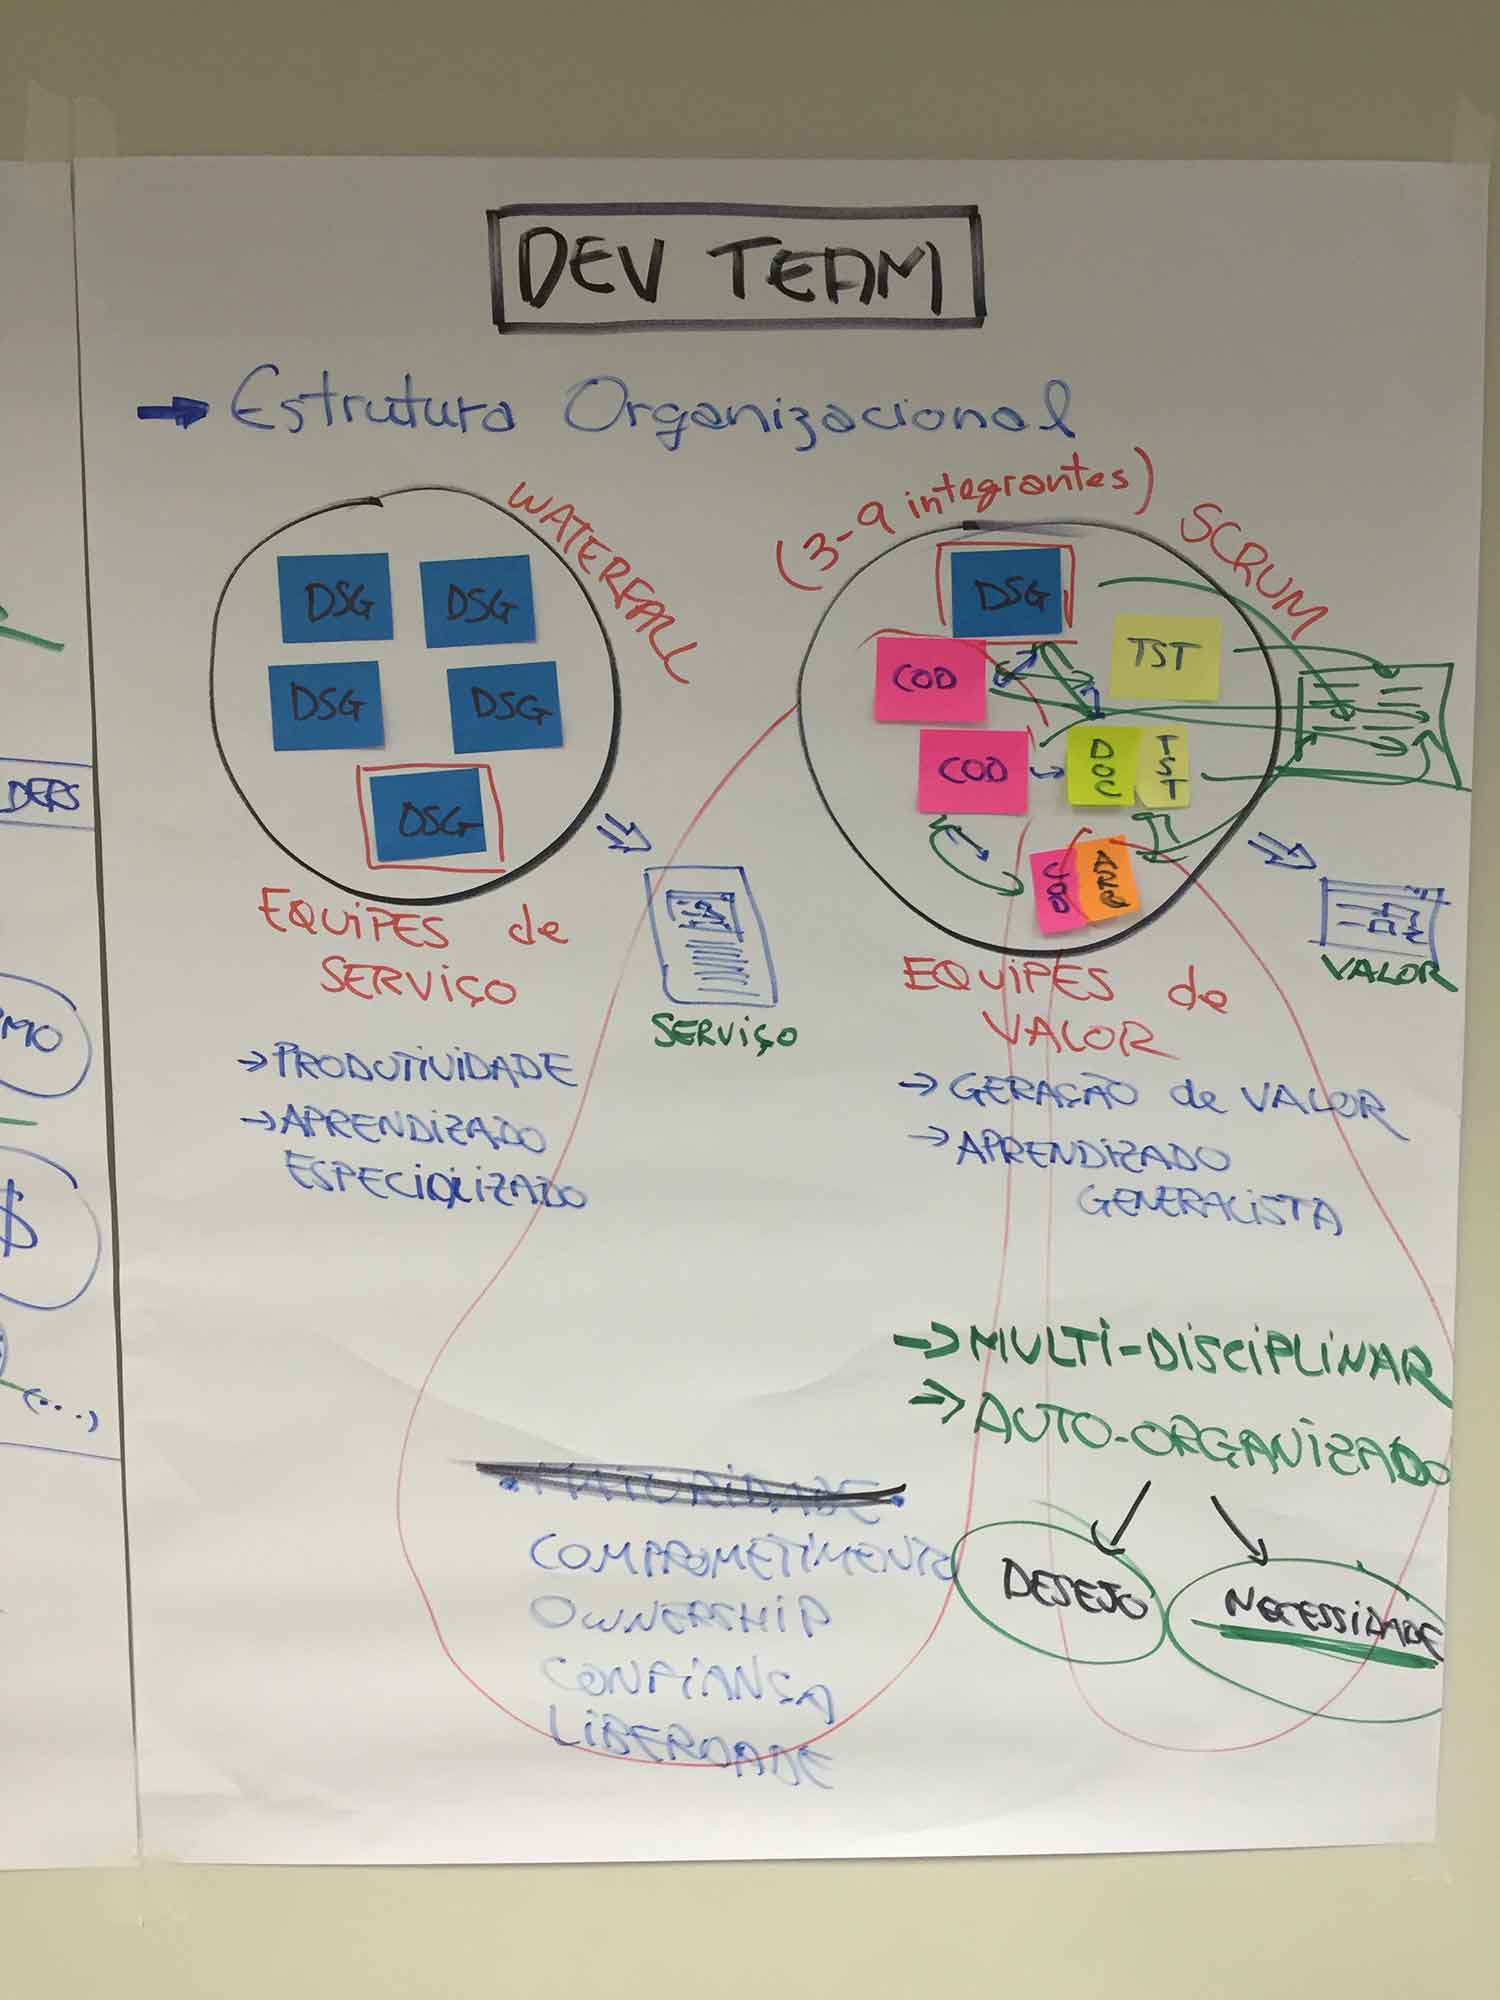 DEV TEAM
Estrutura Organizacional
WATERFALL
DSG
DSG
DSG
DSG
DSG
EQUIPES de
SERVIÇO
→ PRODUTIVIDADE
→ APRENDIZADO
ESPECIALIZADO
SERVIÇO
(3-9 integrantes)
SCRUM
DSG
COD
TST
COD
DOC
TST
COD
EQUIPES de
VALOR
VALOR
→ GERAÇÃO de VALOR
→ APRENDIZADO
GENERALISTA
→ MULTI-DISCIPLINAR
→ AUTO-ORGANIZADO
DESEJO
NECESSIDADE
MATURIDADE
COMPROMETIMENTO
OWNERSHIP
CONFIANÇA
LIBERDADE
$
(...)